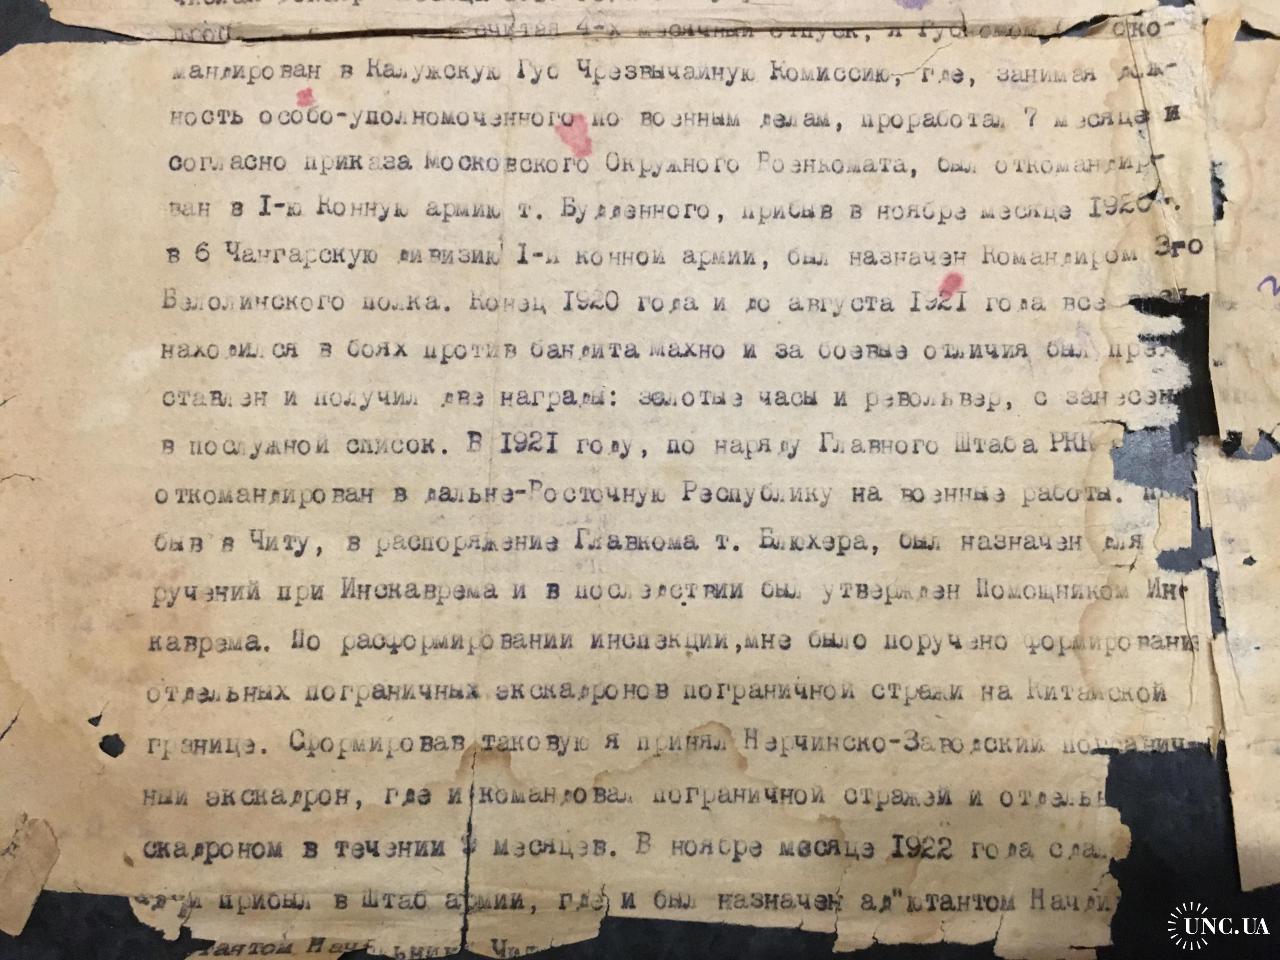 считая 4-х месячный отпуск, я
мандирован в Калужскую Губ Чрезвычайную Комиссию, где, занимая долж-
ность особо-уполномоченного по военным делам, проработал 7 месяце и
согласно приказа Московского Окружного Военкомата, был откомандир-
ван в 1-ю Конную армию т. Буденного, прибыв в ноябре месяце 1920 г.
в 6 Чангарскую дивизию 1-й конной армии, был назначен Командиром 3го
Белолинского полка. Конец 1920 года и до августа 1921 года все
находился в боях против бандита Махно и за боевые отличия был пред
ставлен и получил две награды: золотые часы и револьвер, с занесен
в послужной список. В 1921 году, по наряду Главного Штаба РКК
откомандирован в дальне-Восточную Республику на военные работы.
быв в Читу, в распоряжение Главкома т. Блюхера, был назначен для
ручений при Инскаврема и в последствии был утвержден Помощником Инс
каврема. По расформировании инспекции,мне было поручено формировани
отдельных пограничных экскадронов пограничной стражи на Китайской
границе. Сформировав таковую я принял Нерчинско-Заводский погранич
ный экскадрон, где и командовал пограничной стражей и отдельн
скадроном в течении месяцев. В ноябре месяце 1922 года сда
и прибыл в Штаб армии, где и был назначен ад"ютантом Начди
UNC.UA